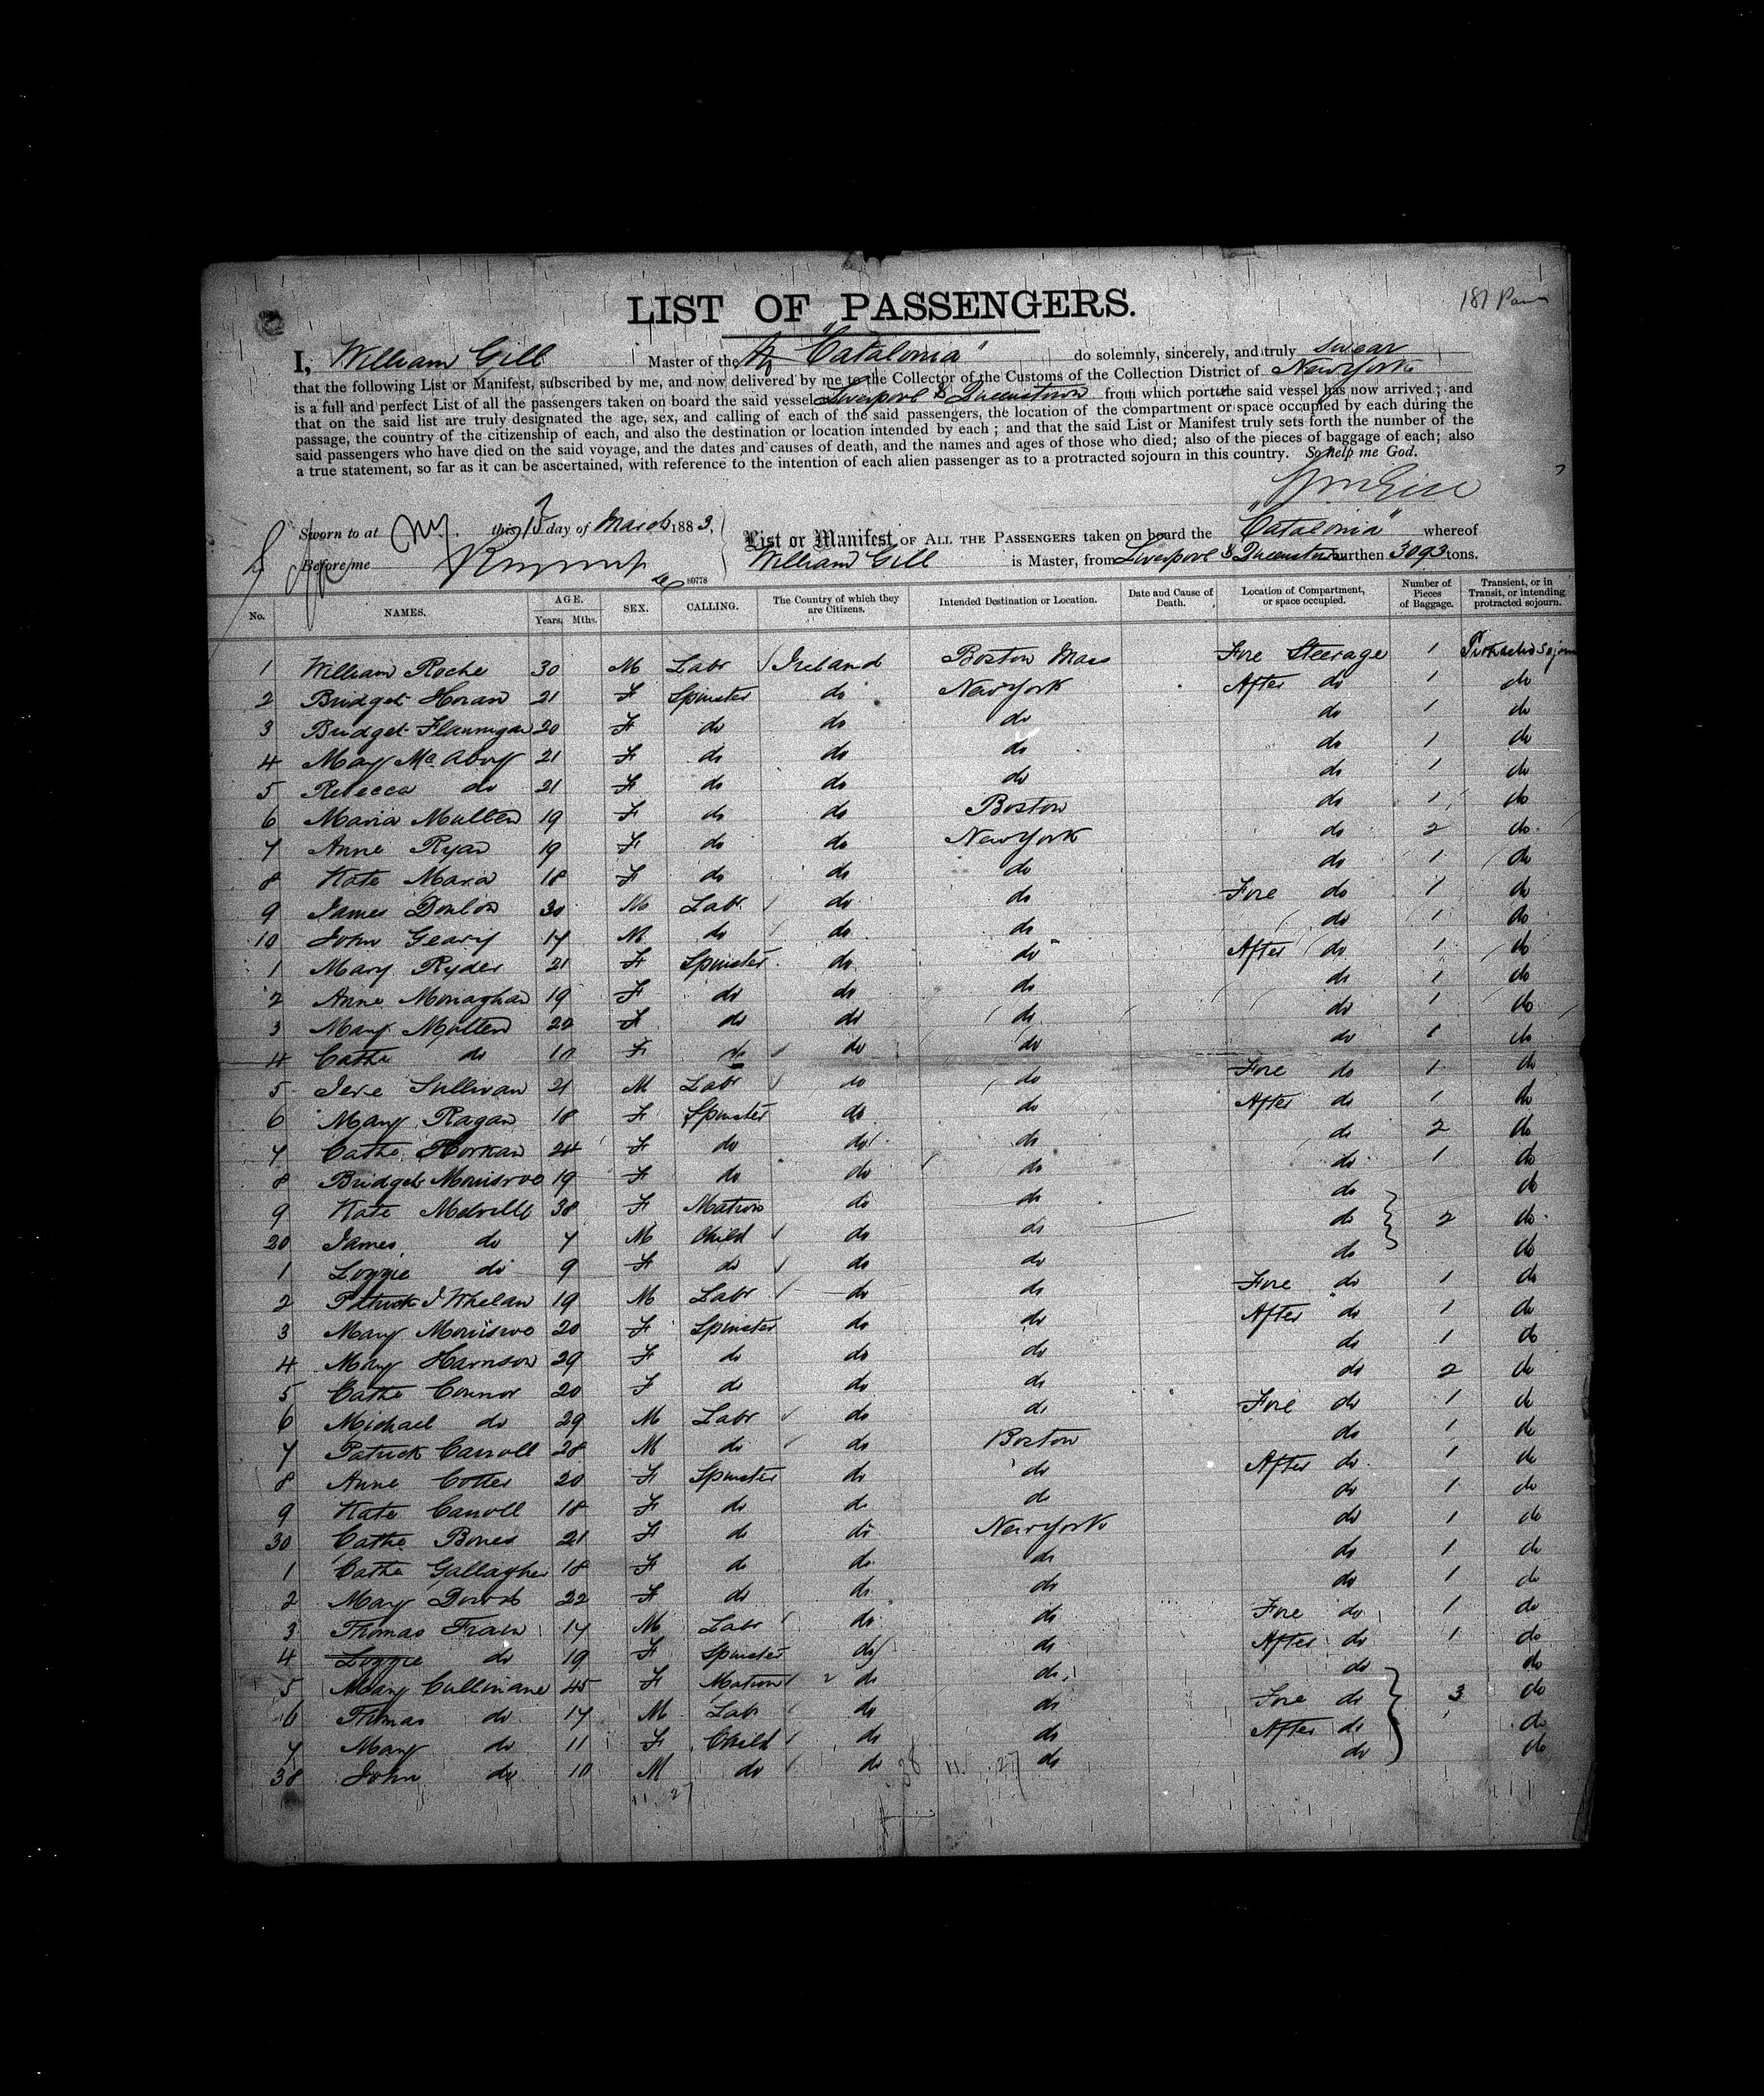 187 Pass
LIST OF PASSENGERS.
I, William Gill Master of the "Catalonia" do solemnly, sincerely, and truly swear
that the following List or Manifest, subscribed by me, and now delivered by me to the Collector of the Customs of the Collection District of New York
is a full and perfect List of all the passengers taken on board the said vessel Liverpool & Queenstown from which port the said vessel has now arrived; and
that on the said list are truly designated the age, sex, and calling of each of the said passengers, the location of the compartment or space occupied by each during the
passage, the country of the citizenship of each, and also the destination or location intended by each; and that the said List or Manifest truly sets forth the number of the
said passengers who have died on the said voyage, and the dates and causes of death, and the names and ages of those who died; also of the pieces of baggage of each; also
a true statement, so far as it can be ascertained, with reference to the intention of each alien passenger as to a protracted sojourn in this country. So help me God.
Wm Gill
Sworn to at N.Y. this 13 day of March 1883,
Before me
List or Manifest OF ALL THE PASSENGERS taken on board the "Catalonia" whereof
William Gill is Master, from Liverpool & Queenstown burthen 3093 tons.
80778
No. NAMES. AGE. Years. Mths. SEX. CALLING. The Country of which they are Citizens. Intended Destination or Location. Date and Cause of Death. Location of Compartment, or space occupied. Number of Pieces of Baggage. Transient, or in Transit, or intending protracted sojourn.
1 William Roche 30 M Labr Ireland Boston Mass Fore Steerage 1 Protracted Sojourn
2 Bridget Horan 21 F Spinster do New York After do 1 do
3 Bridget Flannigan 20 F do do do do 1 do
4 Mary Mc Avoy 21 F do do do do 1 do
5 Rebecca do 21 F do do do do 1 do
6 Maria Mullen 19 F do do Boston do 1 do
7 Anne Ryan 19 F do do New York do 2 do
8 Kate Mara 18 F do do do do 1 do
9 James Donlon 30 M Labr do do Fore do 1 do
10 John Geary 17 M do do do do 1 do
1 Mary Ryder 21 F Spinster do do After do 1 do
2 Anne Monaghan 19 F do do do do 1 do
3 Mary Mullen 22 F do do do do 1 do
4 Cathe do F do do do do 1 do
5 Jere Sullivan 21 M Labr do do Fore do 1 do
6 Mary Ragan 18 F Spinster do do After do 1 do
7 Cathe Horkan 24 F do do do do 2 do
8 Bridget Monisroe 19 F do do do do 1 do
9 Kate Melville 38 F Matron do do do do
20 James do 7 M Child do do do 2 do
1 Lizzie do 9 F do do do do do
2 Patrick J Whelan 19 M Labr do do Fore do 1 do
3 Mary Monisroe 20 F Spinster do do After do 1 do
4 Mary Harrison 29 F do do do do 1 do
5 Cathe Connor 20 F do do do do 2 do
6 Michael do 29 M Labr do do Fore do 1 do
7 Patrick Carroll 28 M do do Boston do 1 do
8 Anne Cotter 20 F Spinster do do After do 1 do
9 Kate Carroll 18 F do do do do 1 do
30 Cathe Bones 21 F do do New York do 1 do
1 Cathe Gallagher 18 F do do do do 1 do
2 Mary Dowd 22 F do do do do 1 do
3 Thomas Frain 17 M Labr do do Fore do 1 do
4 Lizzie do 19 F Spinster do do After do 1 do
5 Mary Cullinane 45 F Matron 2 do do do do
6 Thomas do 17 M Labr do do Fore do 3 do
7 Mary do 11 F Child do do After do do
38 John do 10 M do do do do do
11 27 38 11 27